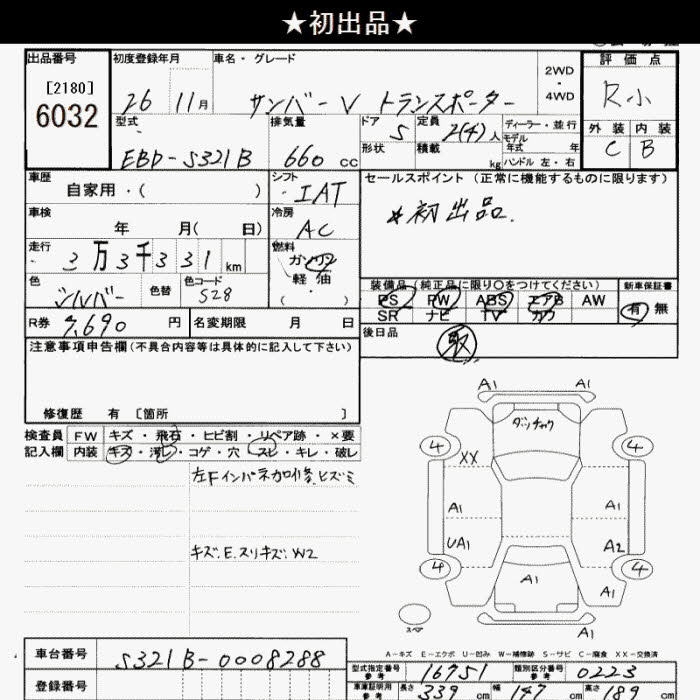 ★初出品★
出品番号 初度登録年月 車名・グレード 2WD・4WD 評価点
[2180]
6032
26 11月 サンバーV トランスポーター R小
型式 排気量 ドア 定員 ディーラー・並行 外装 内装
EBD-S321B 660 cc 5 2(4)人 モデル年式 年 C B
形状 積載 kg ハンドル 左・右
車歴 シフト セールスポイント(正常に機能するものに限ります)
自家用・( ) IAT
*初出品.
車検 冷房
年 月( 日) AC
走行 燃料
3万3千331km ガソリン
軽油
・
( )
色 色替 色コード 装備品(純正品に限り○をつけてください) 新車保証書
シルバー S28 PS PW ABS エアB AW 有 無
SR ナビ TV カワ
R券 7,690 円 名変期限 月 日 後日品
取
注意事項申告欄(不具合内容等は具体的に記入して下さい)
修復歴 有 〔箇所 〕
検査員 FW キズ・飛石・ヒビ割・リペア跡・×要
記入欄 内装 キズ・汚レ・コゲ・穴・スレ・キレ・破レ
キズ.E.スリキズ.W2
A1 A1
ダッチャク
4 4
XX
A1 A1
UA1 A2
4 4
A1
A1
スペア
A-キズ E-エクボ U-凹み W-補修跡 S-サビ C-腐食 XX-交換済
車台番号 S321B-0008288
登録番号
型式指定番号 参考 16751 類別区分番号 参考 0223
車庫証明用 参考 長さ 339 cm 幅 147 cm 高さ 189 cm